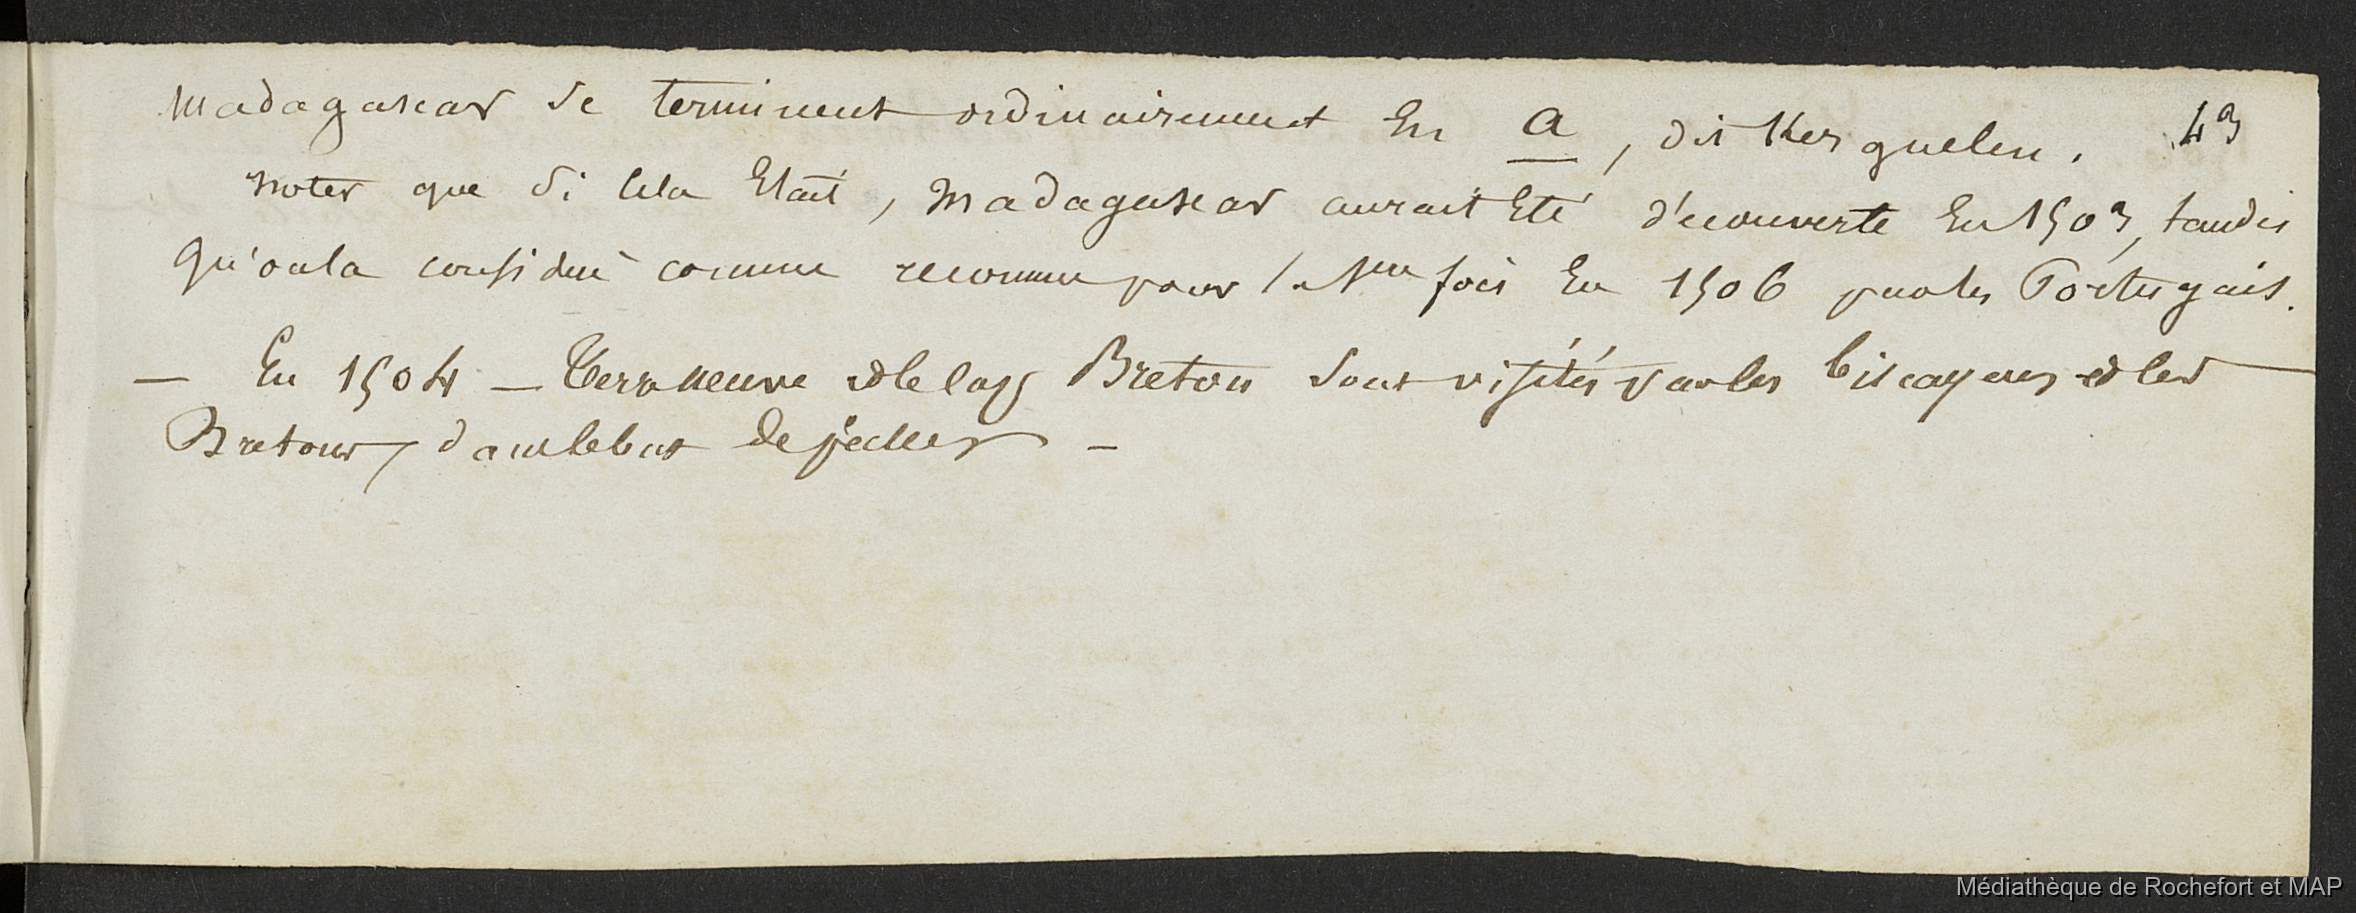 Madagascar se terminent ordinairement en a, dit Kerguelen. 43
noter que si cela était, Madagascar aurait été découverte en 1503, tandis
qu'on la considère comme reconnue pour la 1ere fois en 1506 par les Portugais.
— En 1504 — Terre neuve et le cap Breton sont visités par les biscayens et les
Bretons, dans le but de pêcher —
Médiathèque de Rochefort et MAP